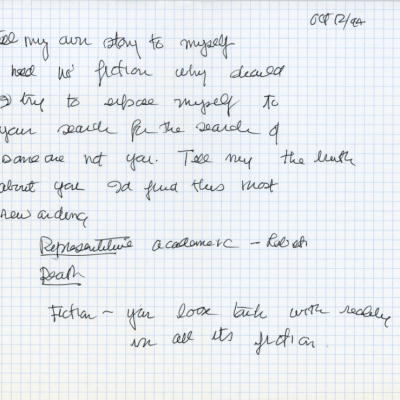 Oct 12/94
my own story to myself
need no fiction why should
try to expose myself to
your search for the search of
someone not you. Tell my the truth
about you I'd find this most
rewarding
Representative academic –
Death
Fiction – you lose touch with reality
in all its fiction.